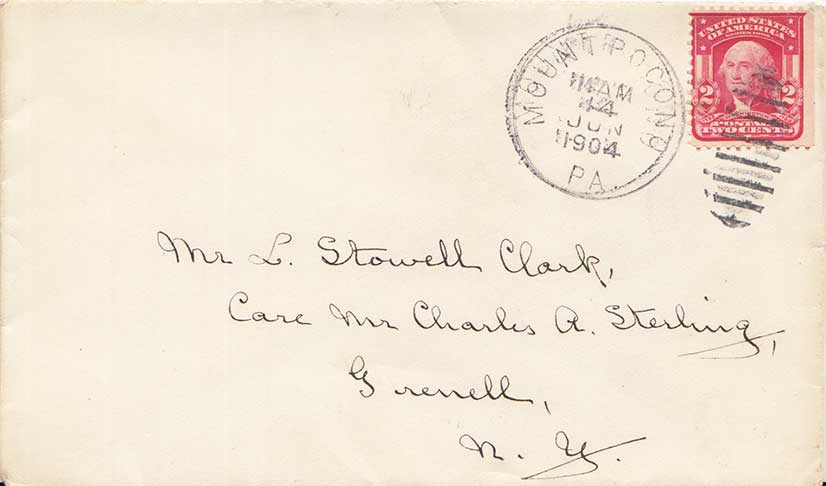 MOUNT POCONO
AM
14
JUN
1904
PA.
UNITED STATES
OF AMERICA
2 2
POSTAGE
TWO CENTS
Mr L. Stowell Clark,
Care Mr Charles A. Sterling,
Grenell,
N. Y.